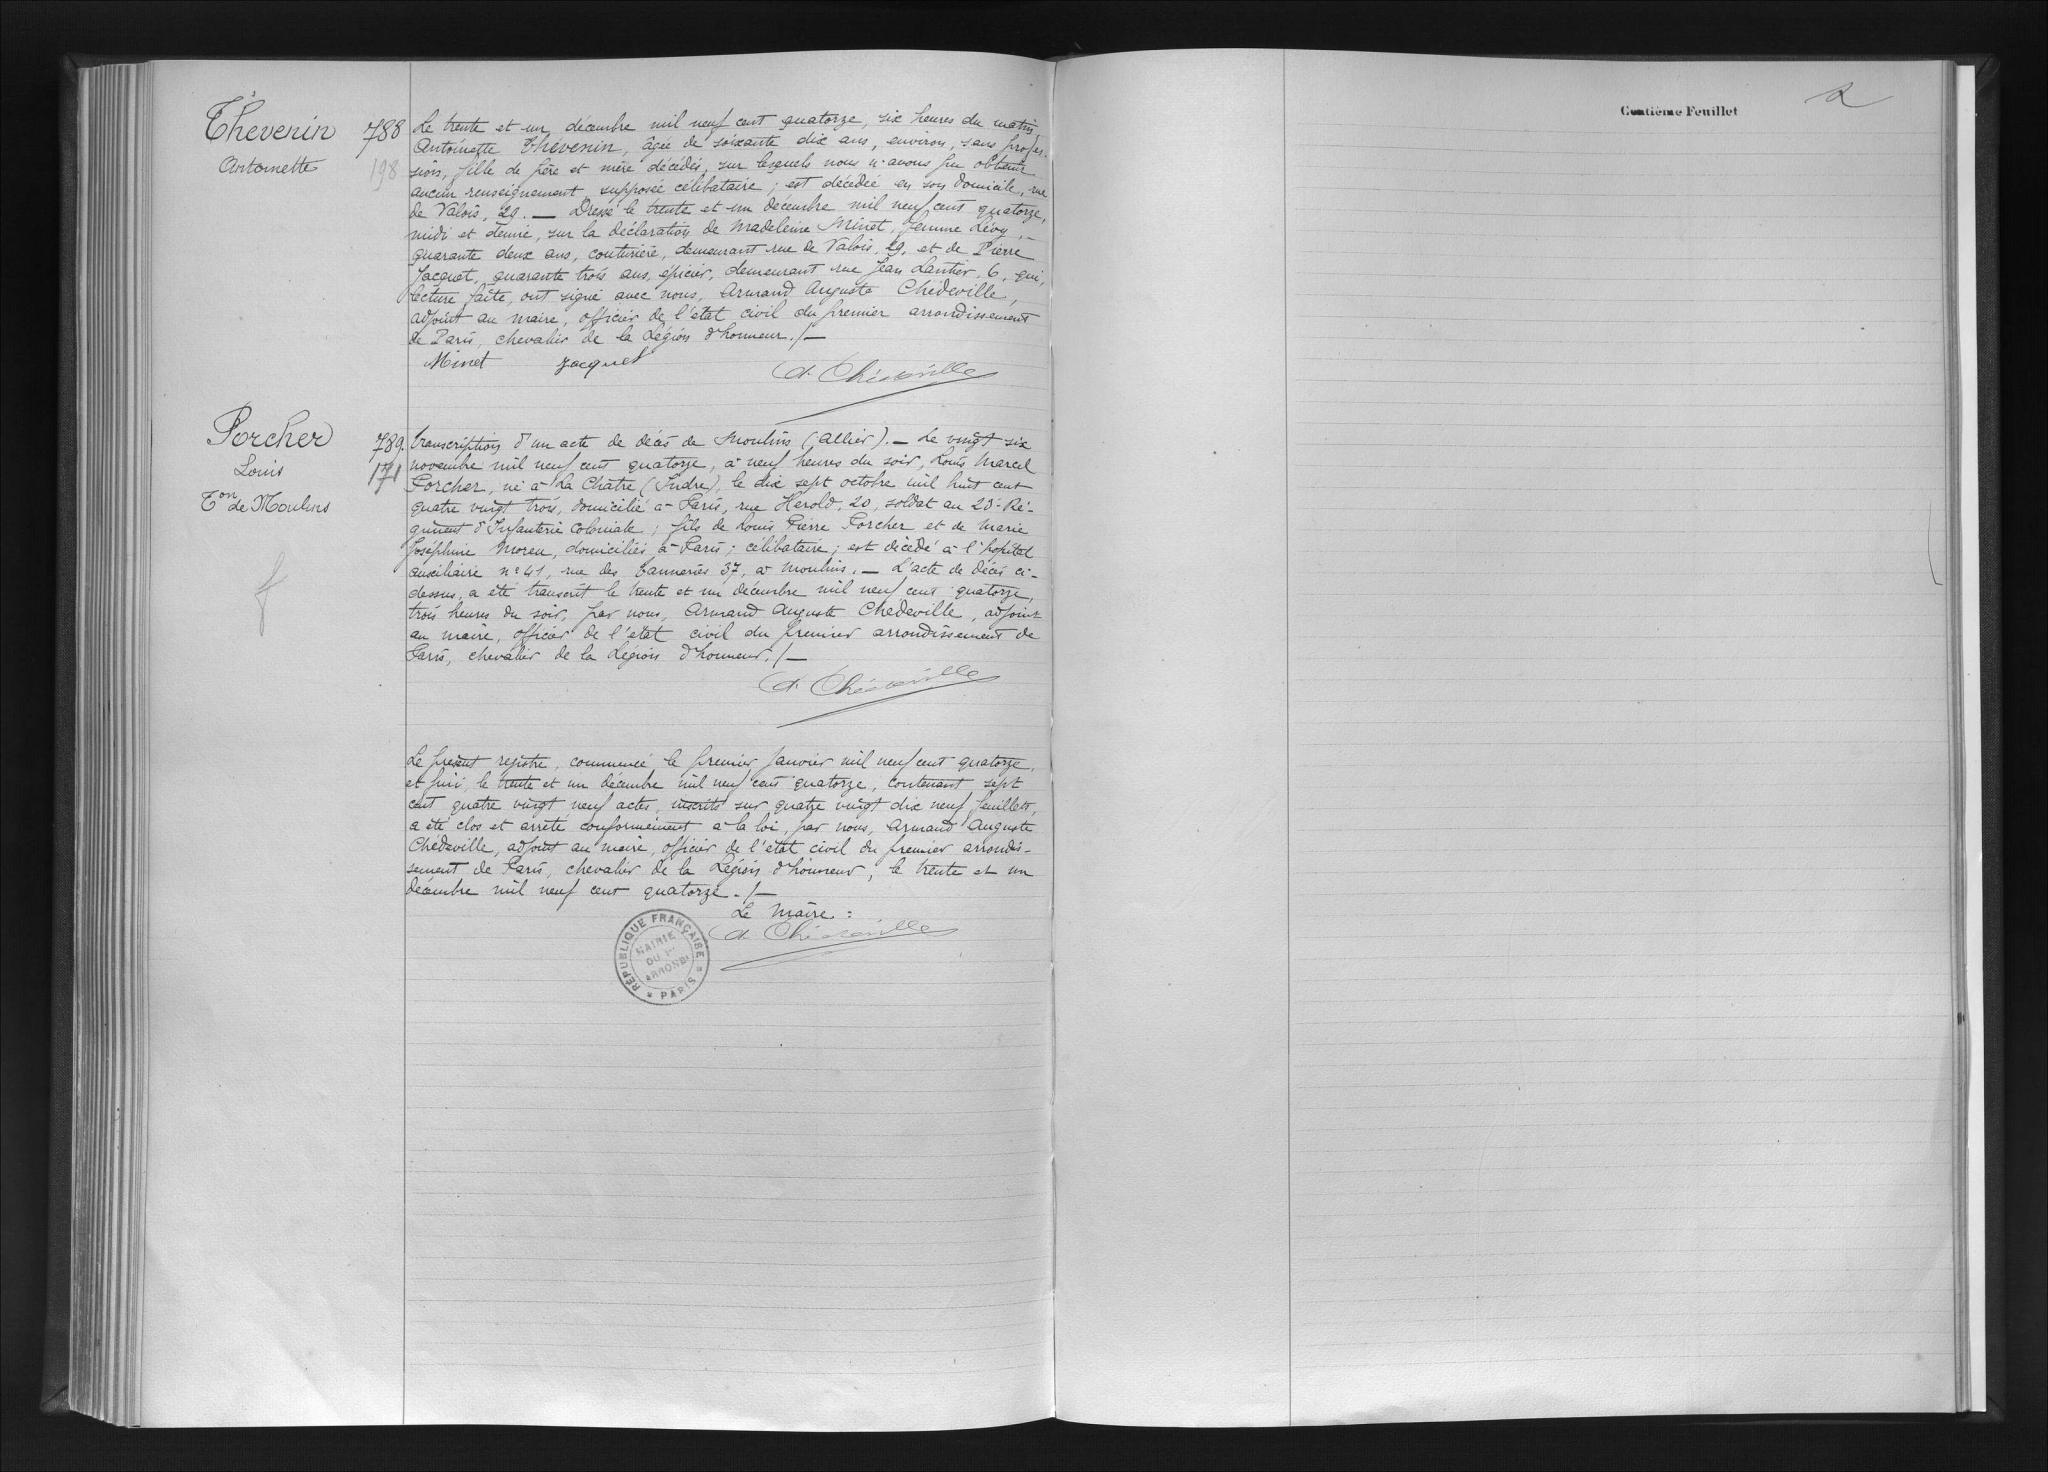 Thévenin
Antoinette
788
198
Le trente et un décembre mil neuf cent quatorze, six heures du matin,
Antoinette Thévenin, âgée de soixante dix ans, environ, sans profes-
sion, fille de père et mère décédés, sur lesquels nous n'avons pu obtenir
aucun renseignement, supposée célibataire ; est décédée en son domicile, rue
de Valois, 29. — Dressé le trente et un décembre mil neuf cent quatorze,
midi et demie, sur la déclaration de Madeleine Minet, femme Lévy, —
quarante deux ans, couturière, demeurant rue de Valois, 29, et de Pierre
Jacquet, quarante trois ans, épicier, demeurant rue Jean Lantier, 6, qui,
lecture faite, ont signé avec nous, Armand Auguste Chédeville,
adjoint au maire, officier de l'état civil du premier arrondissement
de Paris, chevalier de la Légion d'honneur. /—
Minet Jacquet
A. Chédeville
Porcher
Louis
Ton de Moulins
789.
171
Transcription d'un acte de décès de Moulins (Allier). — Le vingt six
novembre mil neuf cent quatorze, à neuf heures du soir, Louis Marcel
Porcher, né à La Châtre (Indre), le dix sept octobre mil huit cent
quatre vingt trois, domicilié à Paris, rue Hérold, 20, soldat au 23e Ré-
giment d'Infanterie Coloniale ; fils de Louis Pierre Porcher et de Marie
Joséphine Moreu, domiciliés à Paris ; célibataire ; est décédé à l'hôpital
auxiliaire n° 41, rue des Tanneries 37, à Moulins. — L'acte de décès ci-
dessus, a été transcrit le trente et un décembre mil neuf cent quatorze,
trois heures du soir, par nous, Armand Auguste Chédeville, adjoint
au maire, officier de l'état civil du premier arrondissement de
Paris, chevalier de la Légion d'honneur. /—
A. Chédeville
Le présent registre, commencé le premier Janvier mil neuf cent quatorze,
et fini, le trente et un décembre mil neuf cent quatorze, contenant sept
cent quatre vingt neuf actes, inscrits sur quatre vingt dix neuf feuillets,
a été clos et arrêté conformément à la loi, par nous, Armand Auguste
Chédeville, adjoint au maire, officier de l'état civil du premier arrondis-
sement de Paris, chevalier de la Légion d'honneur, le trente et un
décembre mil neuf cent quatorze. /—
Le Maire :
A. Chédeville
RÉPUBLIQUE FRANÇAISE * PARIS *
MAIRIE
DU 1er
ARRONDt
Centième Feuillet